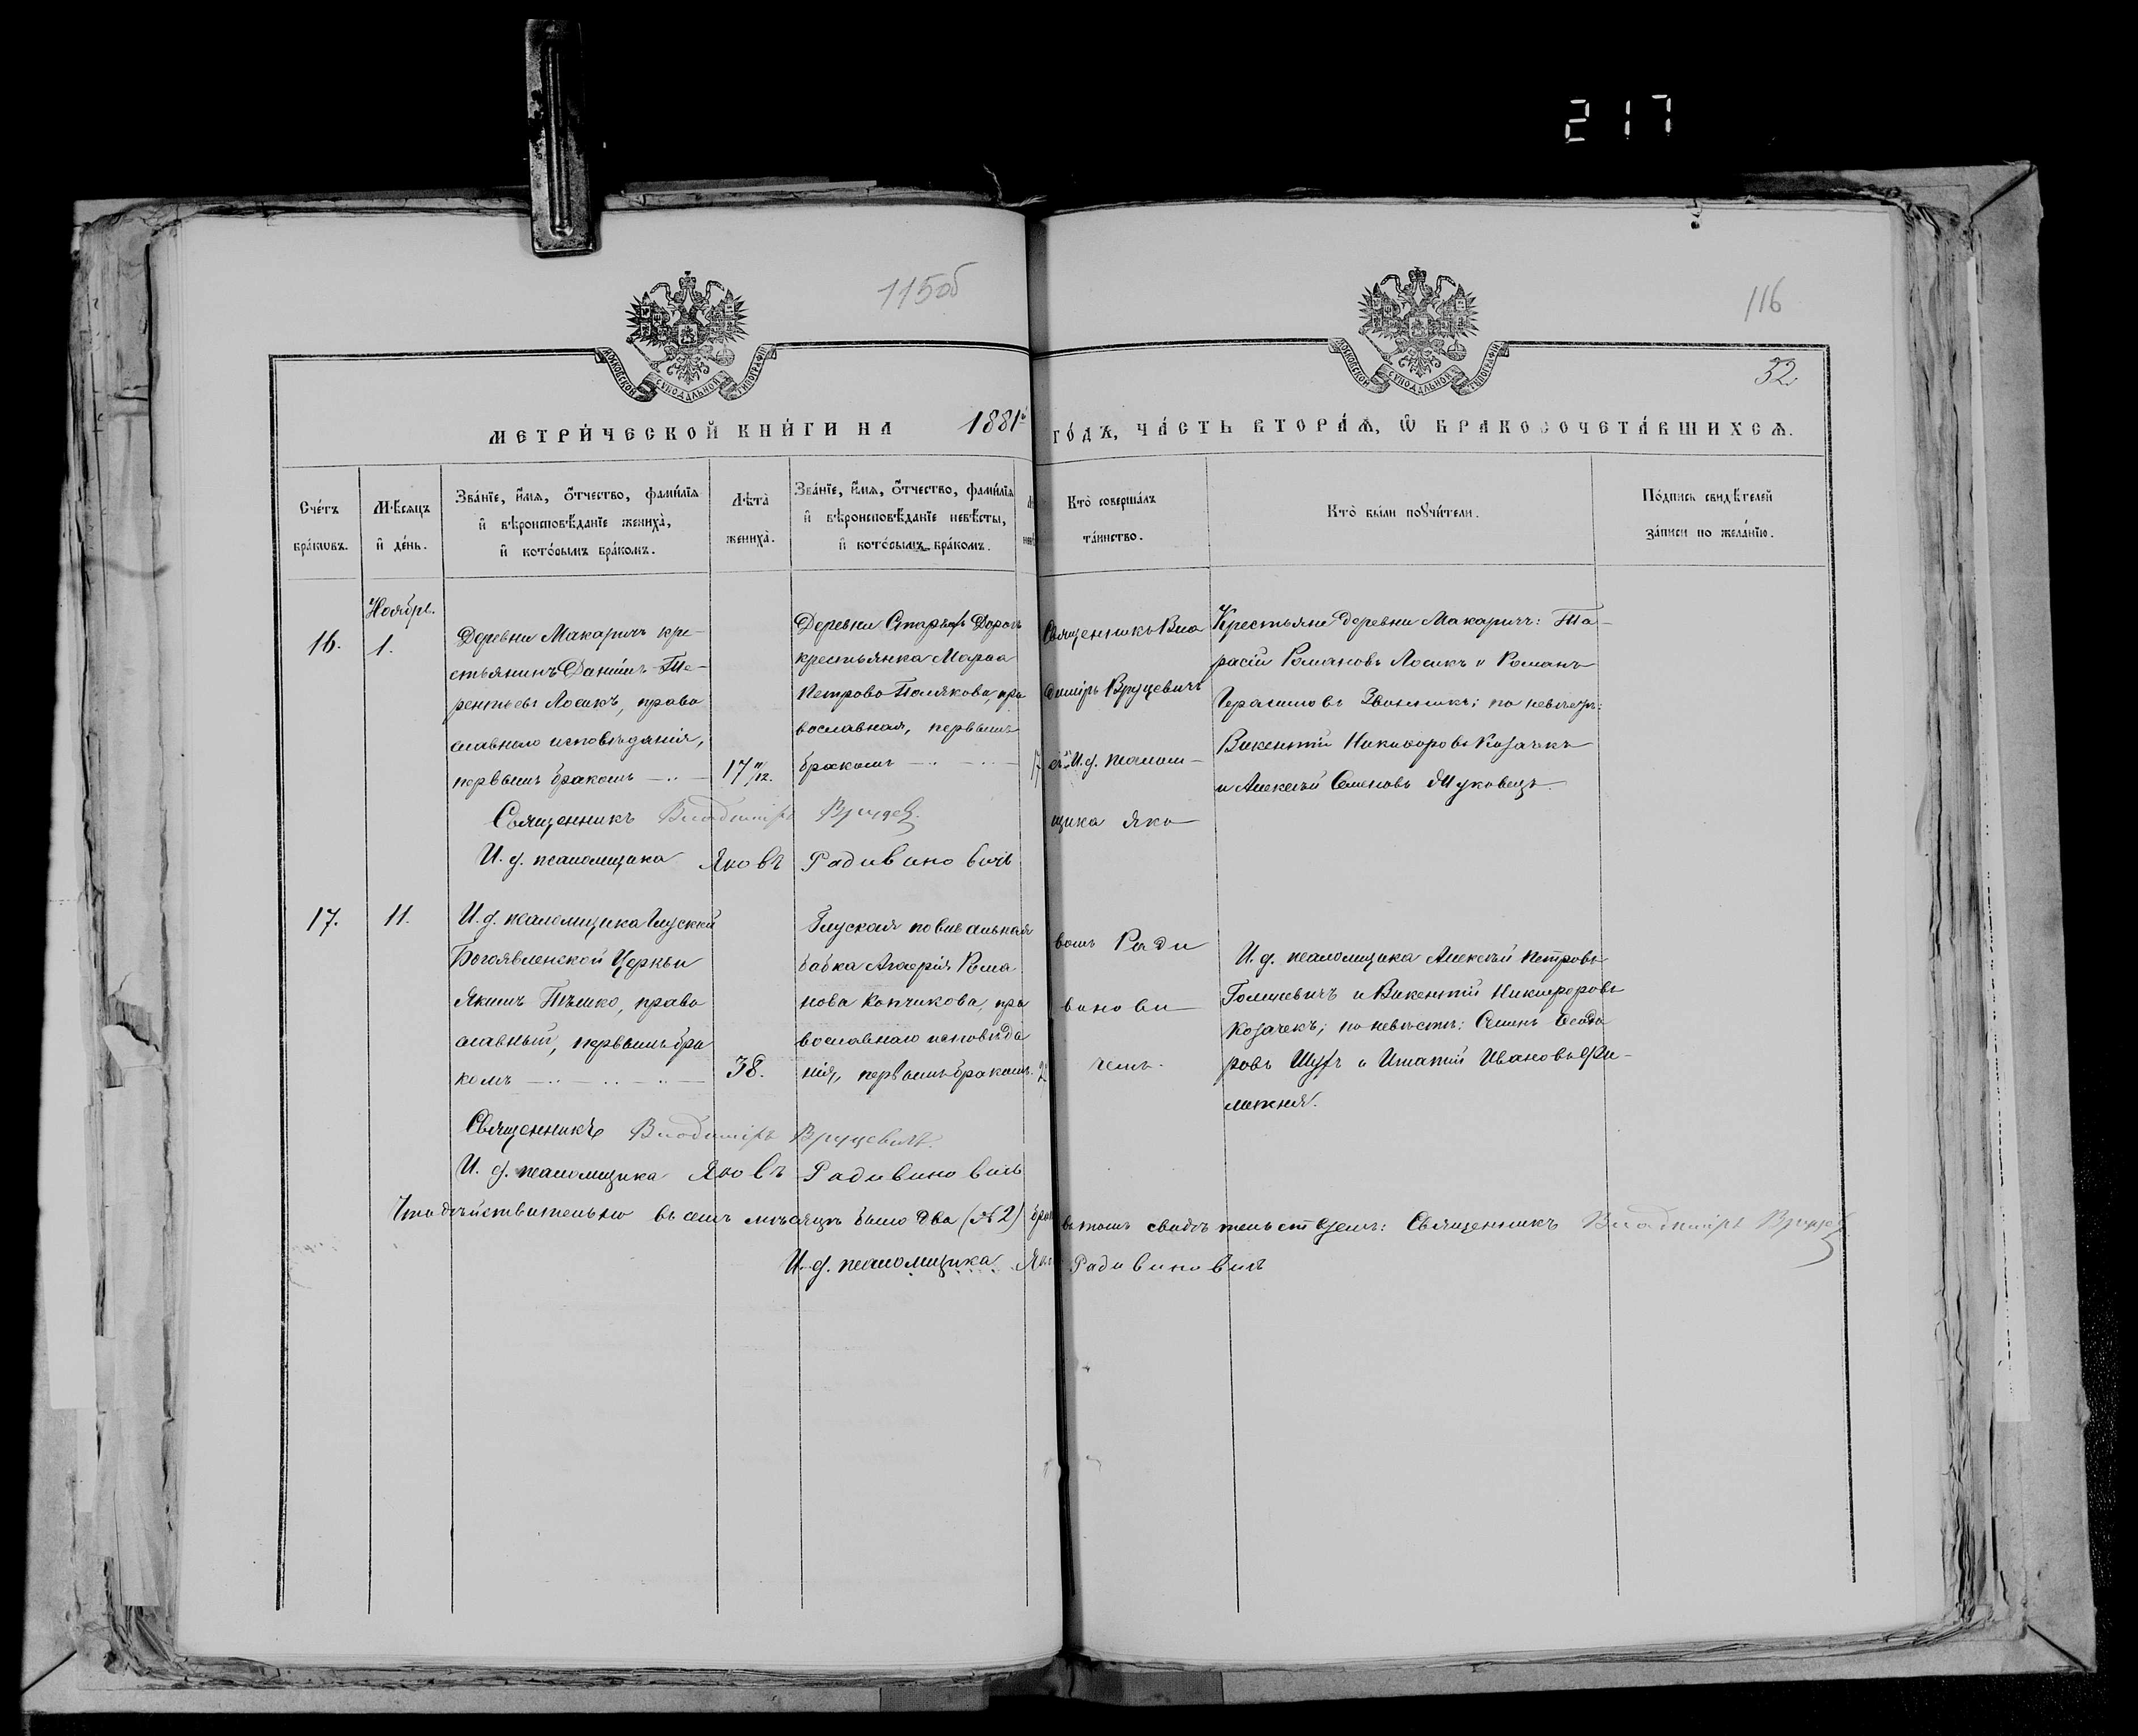 217
115об
116
МОСКОВСКОЙ СѴНОДАЛЬНОЙ ТИПОГРАФІИ
МОСКОВСКОЙ СѴНОДАЛЬНОЙ ТИПОГРАФІИ
32
МЕТРИ́ЧЕСКОЙ КНИ́ГИ НА 1881й ГО́ДЪ, ЧА́СТЬ ВТОРА́Ѧ, Ѡ БРАКОСОЧЕТА́ВШИХСѦ.
Сче́тъ бра́кѡвъ.
Мѣ́сяцъ и҆ де́нь.
Зва́нїе, и҆́мѧ, о҆́тчество, фамѝлїѧ и҆ вѣроисповѣ́данїе жениха̀, и҆ кото́рымъ бра́комъ.
Лѣта̀ жениха̀.
Зва́нїе, и҆́мѧ, о҆́тчество, фамѝлїѧ и҆ вѣроисповѣ́данїе невѣ́сты, и҆ кото́рымъ бра́комъ.
Кто̀ соверша́лъ та́инство.
Кто̀ бы́ли пор꙳чи́тели.
По́дпись свидѣ́телей за́писи по жела́нїю.
Ноябрь.
16.
1.
Деревни Макаричъ кре-
стьянинъ Даніилъ Те-
рентьевъ Лосикъ, право
славнаго исповѣданія,
первымъ бракомъ
17 11/12.
Деревни Старыхъ Дорогъ
крестьянка Марѳа
Петрова Полякова, пра
вославная, первымъ
бракомъ
17
Священникъ Вла
диміръ Вруцевичъ
съ И. д. псалом-
щика Яко
Крестьяне деревни Макаричъ: Та-
расій Романовъ Лосикъ и Романъ
Герасимовъ Звонникъ; по невѣстѣ:
Викентій Никифоровъ Козачекъ
и Алексѣй Семеновъ Жуковецъ.
Священникъ Владиміръ Вруцев.
И. д. псаломщика Яковъ Радивиновичъ
17.
11.
И. д. псаломщика Глусской
Богоявленской Церкви
Якимъ Тышко, право
славный, первымъ бра
комъ
38.
Глуская повивальная
бабка Агафія Рома
нова Копчикова, пра
вославнаго исповѣда
нія, первымъ бракомъ.
вомъ Ради
винови
чемъ.
И. д. псаломщика Алексѣй Петровъ
Голиневичъ и Викентій Никифоровъ
Козачекъ; по невѣстѣ: Семенъ Ѳеодо
ровъ Шуръ и Игнатій Ивановъ
Священникъ Владиміръ Вруцевичъ.
И. д. псаломщика Яковъ Радивиновичъ
Что дѣйствительно въ семъ мѣсяцѣ было два (№ 2) брака въ томъ свидѣтельствуемъ: Священникъ Владиміръ Вруцев.
И. д. псаломщика Яковъ Радивиновичъ